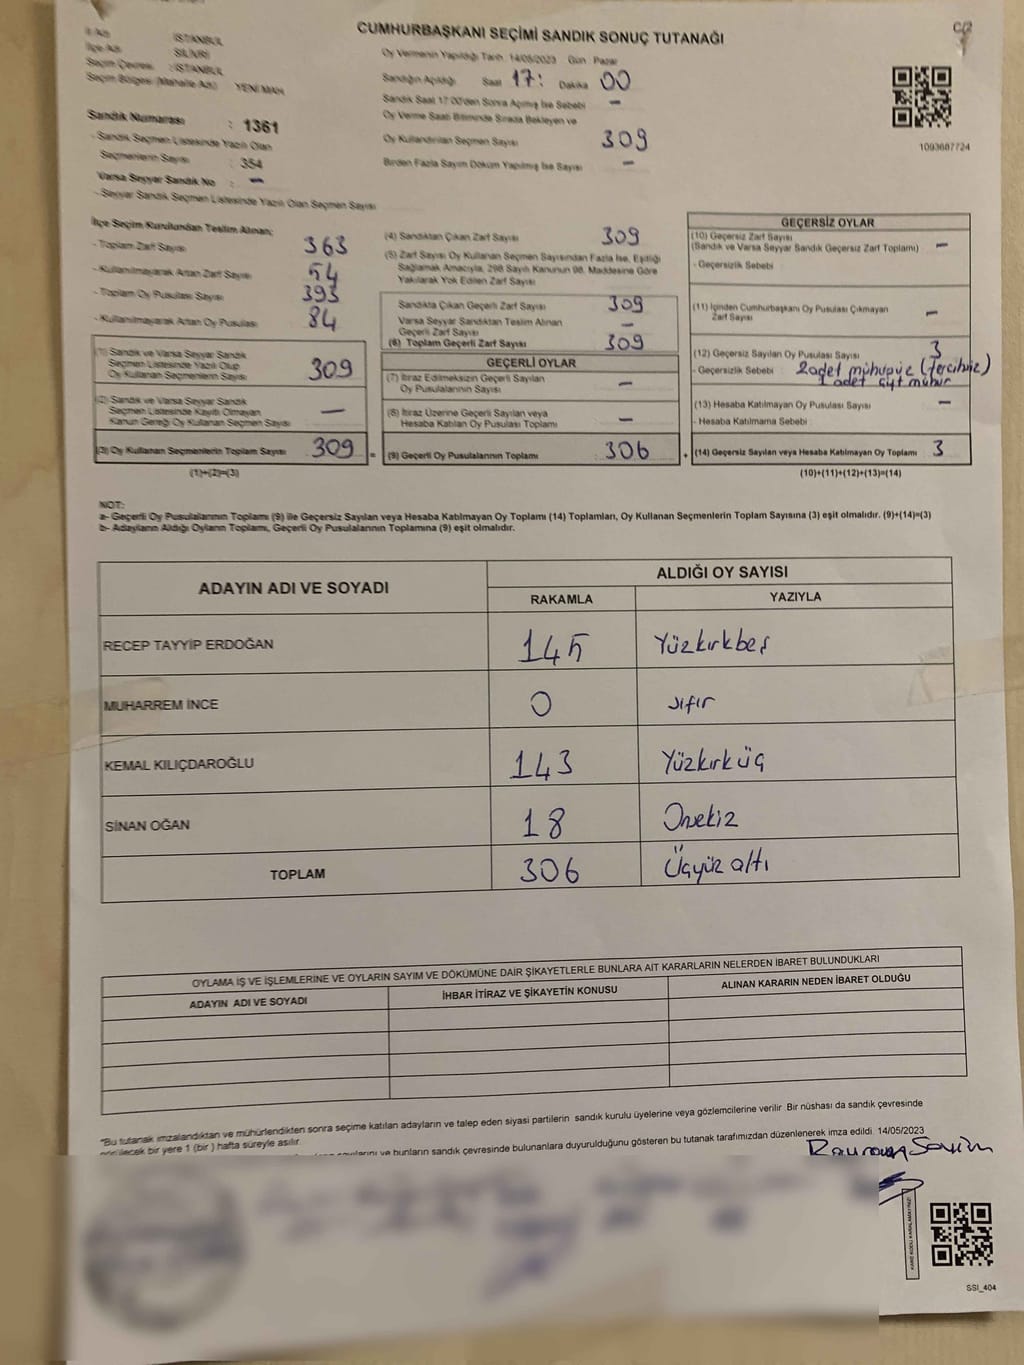 CUMHURBAŞKANI SEÇİMİ SANDIK SONUÇ TUTANAĞI
C/2
İl Adı : İSTANBUL
İlçe Adı : SİLİVRİ
Seçim Çevresi : İSTANBUL
Seçim Bölgesi (Mahalle Adı) : YENİ MAH.
Sandık Numarası : 1361
- Sandık Seçmen Listesinde Yazılı Olan
Seçmenlerin Sayısı : 354
Varsa Seyyar Sandık No : -
- Seyyar Sandık Seçmen Listesinde Yazılı Olan Seçmen Sayısı
Oy Vermenin Yapıldığı Tarih 14/05/2023 Gün Pazar
Sandığın Açıldığı Saat 17: Dakika 00
Sandık Saat 17:00'den Sonra Açılmış İse Sebebi -
Oy Verme Saati Bitiminde Sırada Bekleyen ve
Oy Kullandırılan Seçmen Sayısı 309
Birden Fazla Sayım Döküm Yapılmış İse Sayısı -
1093687724
İlçe Seçim Kurulundan Teslim Alınan;
- Toplam Zarf Sayısı 363
- Kullanılmayarak Artan Zarf Sayısı 54
- Toplam Oy Pusulası Sayısı 393
- Kullanılmayarak Artan Oy Pusulası 84
(1) Sandık ve Varsa Seyyar Sandık
Seçmen Listesinde Yazılı Olup
Oy Kullanan Seçmenlerin Sayısı 309
(2) Sandık ve Varsa Seyyar Sandık
Seçmen Listesinde Kayıtlı Olmayan
Kanun Gereği Oy Kullanan Seçmen Sayısı -
(3) Oy Kullanan Seçmenlerin Toplam Sayısı 309 =
(1)+(2)=(3)
(4) Sandıktan Çıkan Zarf Sayısı 309
(5) Zarf Sayısı Oy Kullanan Seçmen Sayısından Fazla İse, Eşitliği
Sağlamak Amacıyla, 298 Sayılı Kanunun 98. Maddesine Göre
Yakılarak Yok Edilen Zarf Sayısı
Sandıkta Çıkan Geçerli Zarf Sayısı 309
Varsa Seyyar Sandıktan Teslim Alınan
Geçerli Zarf Sayısı -
(6) Toplam Geçerli Zarf Sayısı 309
GEÇERLİ OYLAR
(7) İtiraz Edilmeksizin Geçerli Sayılan
Oy Pusulasının Sayısı -
(8) İtiraz Üzerine Geçerli Sayılan veya
Hesaba Katılan Oy Pusulası Toplamı -
(9) Geçerli Oy Pusulalarının Toplamı 306 +
GEÇERSİZ OYLAR
(10) Geçersiz Zarf Sayısı
(Sandık ve Varsa Seyyar Sandık Geçersiz Zarf Toplamı) -
- Geçersizlik Sebebi :
(11) İçinden Cumhurbaşkanı Oy Pusulası Çıkmayan
Zarf Sayısı -
(12) Geçersiz Sayılan Oy Pusulası Sayısı 3
- Geçersizlik Sebebi : 2 adet mühürsüz (tercihsiz)
1 adet çift mühür
(13) Hesaba Katılmayan Oy Pusulası Sayısı -
- Hesaba Katılmama Sebebi
(14) Geçersiz Sayılan veya Hesaba Katılmayan Oy Toplamı 3
(10)+(11)+(12)+(13)=(14)
NOT:
a- Geçerli Oy Pusulalarının Toplamı (9) ile Geçersiz Sayılan veya Hesaba Katılmayan Oy Toplamı (14) Toplamları, Oy Kullanan Seçmenlerin Toplam Sayısına (3) eşit olmalıdır. (9)+(14)=(3)
b- Adayların Aldığı Oyların Toplamı, Geçerli Oy Pusulalarının Toplamına (9) eşit olmalıdır.
ADAYIN ADI VE SOYADI
ALDIĞI OY SAYISI
RAKAMLA YAZIYLA
RECEP TAYYİP ERDOĞAN 145 Yüzkırkbeş
MUHARREM İNCE 0 sıfır
KEMAL KILIÇDAROĞLU 143 Yüzkırküç
SİNAN OĞAN 18 Onsekiz
TOPLAM 306 Üçyüz altı
OYLAMA İŞ VE İŞLEMLERİNE VE OYLARIN SAYIM VE DÖKÜMÜNE DAİR ŞİKAYETLERLE BUNLARA AİT KARARLARIN NELERDEN İBARET BULUNDUKLARI
ADAYIN ADI VE SOYADI İHBAR İTİRAZ VE ŞİKAYETİN KONUSU ALINAN KARARIN NEDEN İBARET OLDUĞU
*Bu tutanak imzalandıktan ve mühürlendikten sonra seçime katılan adayların ve talep eden siyasi partilerin sandık kurulu üyelerine veya gözlemcilerine verilir Bir nüshası da sandık çevresinde
görülecek bir yere 1 (bir ) hafta süreyle asılır.
sayılarını ve bunların sandık çevresinde bulunanlara duyurulduğunu gösteren bu tutanak tarafımızdan düzenlenerek imza edildi. 14/05/2023
SSI_404